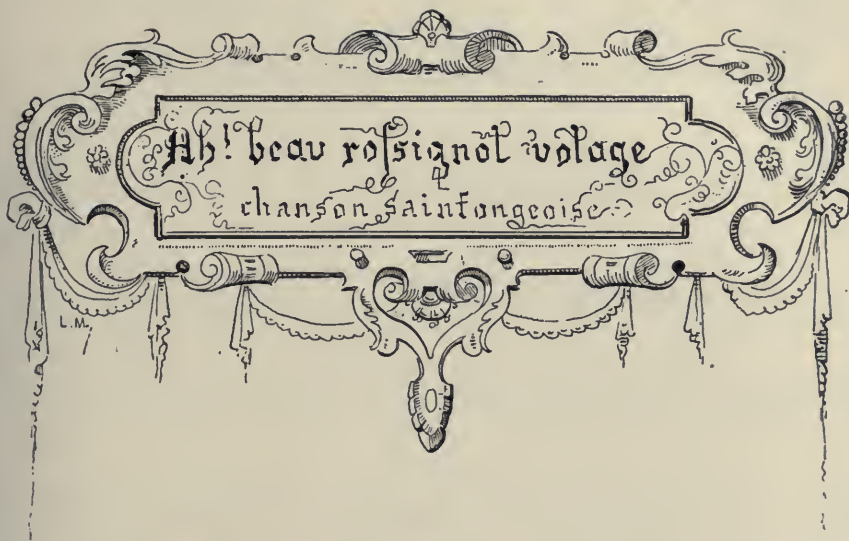 Ah! beau rossignol volage
chanson saintongeoise
L.M.